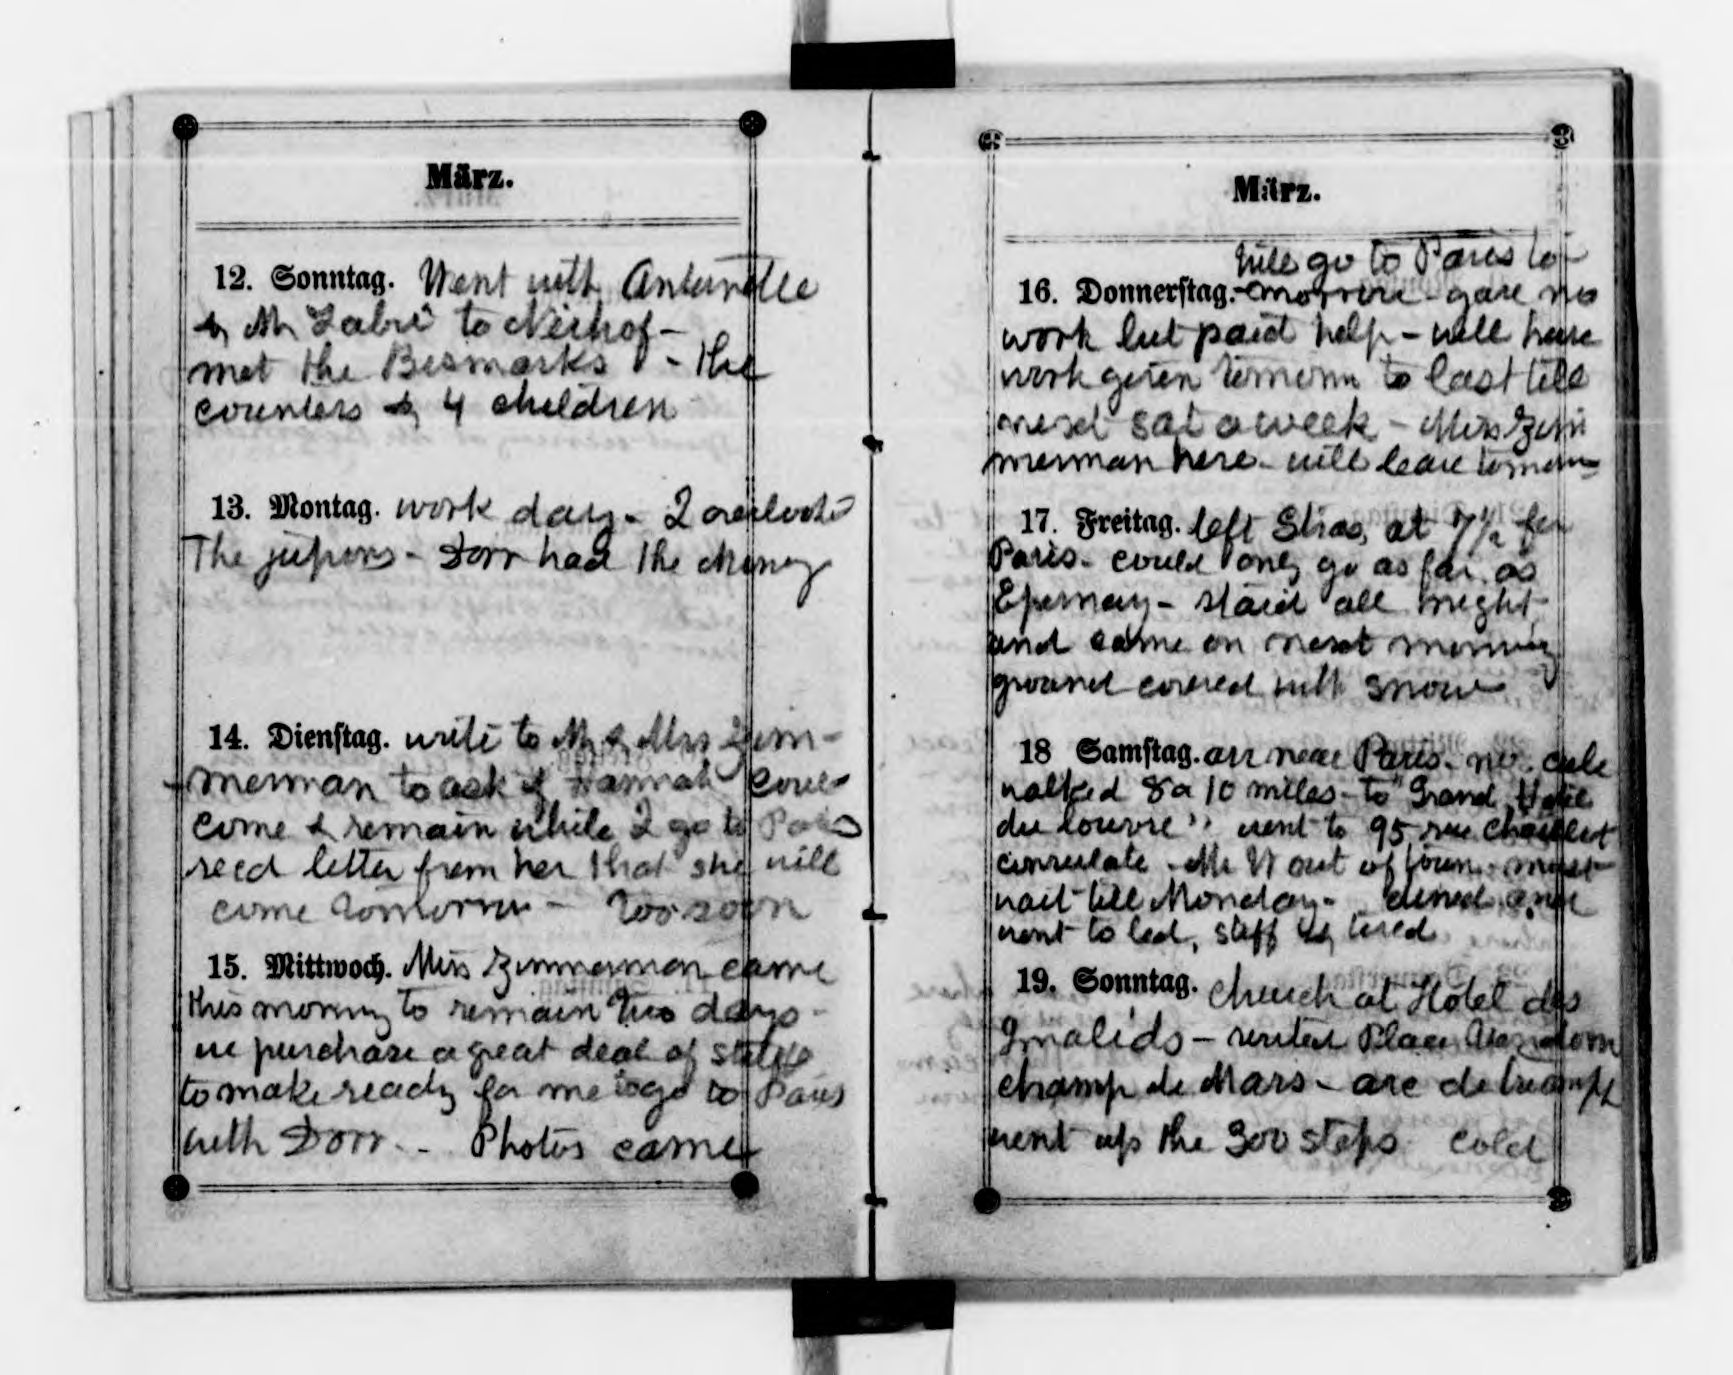 März.
12. Sonntag. Went with Antunette
& Mr Labré to Neihof –
met the Bismarks – the
counters & 4 children
13. Montag. work day – I
The jupons – Dorr had the Money
14. Dienstag. write to Mr & Mrs Zim-
merman to ask if Hannah could
come & remain while I go to Paris
recd letter from her that she will
come tomorrow – too soon
15. Mittwoch. Miss Zimmerman came
this morning to remain two days –
we purchase a great deal of stuff
to make ready for me to go to Paris
with Dorr – Photos came
März.
will go to Paris to-
16. Donnerstag. -morrow – gave no
work but paid help – will have
work given tomorrow to last till
next sat a week – Miss Zim
merman here – will leave tomorrow
17. Freitag. left Stras, at 7½ for
Paris – could only go as far as
Epernay – staid all night
and came on next morning
ground covered with snow
18 Samstag. arr near Paris – no cabs
walked 8 a 10 miles – to "Grand Hotel
du Louvre" went to 95 rue Chaillot
consulate – Mr W out of town – must
wait till Monday – dined and
went to bed, stiff & tired
19. Sonntag. Church at Hotel des
Invalids – visited Place Vendom
champ de Mars – arc de triumph
went up the 300 steps cold